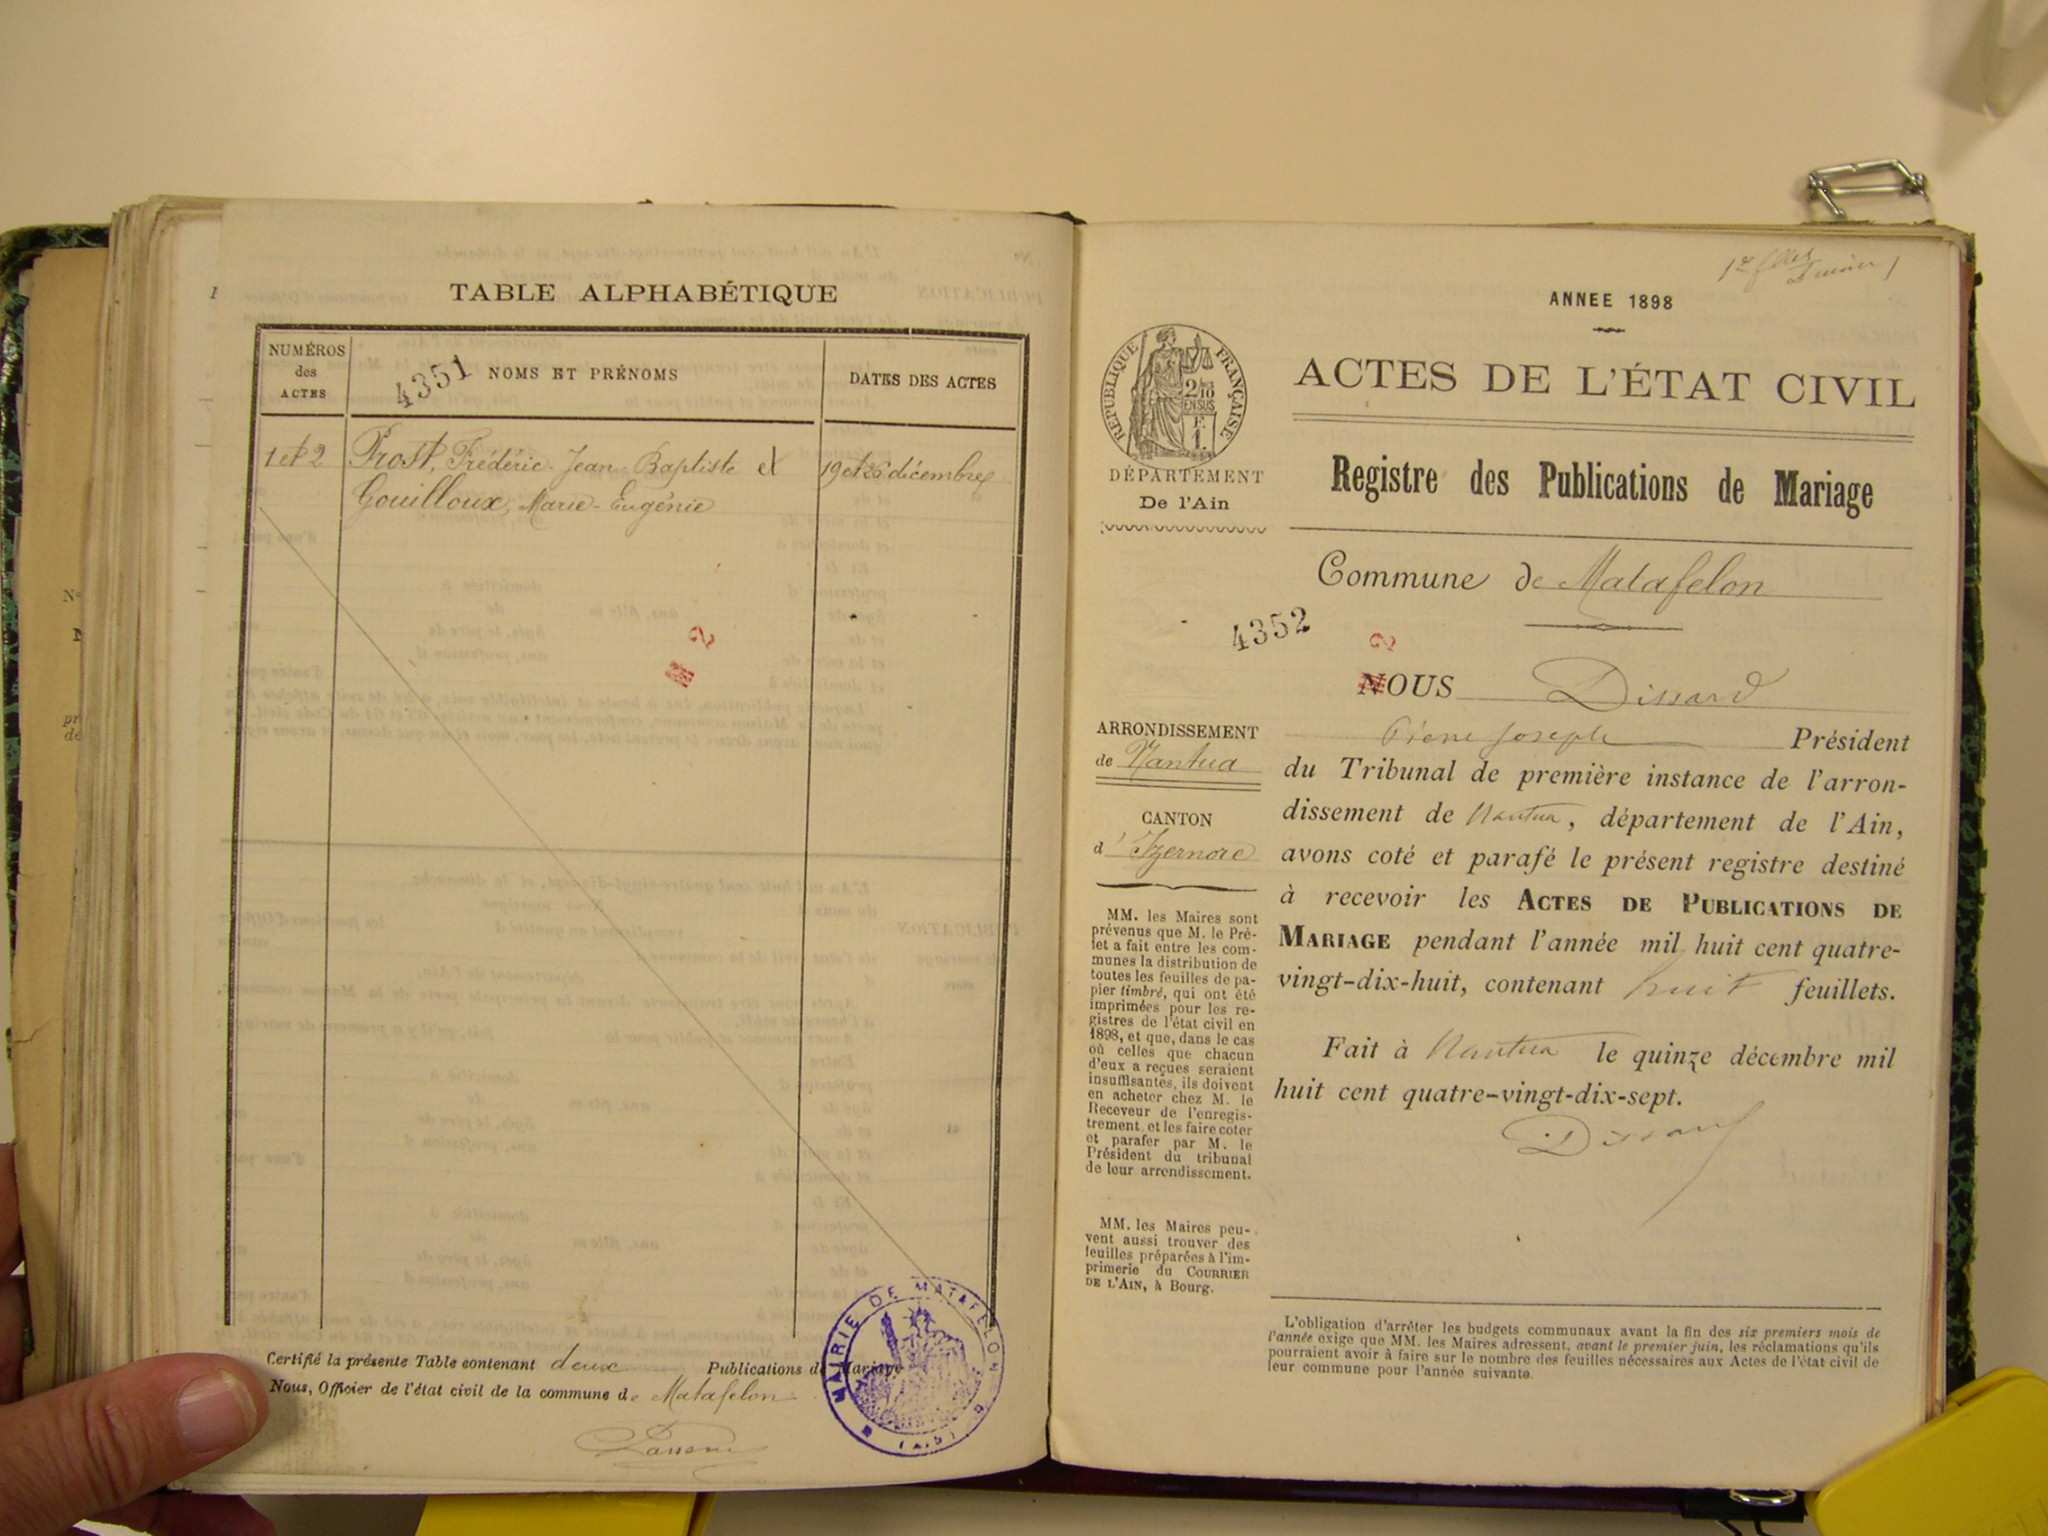 TABLE ALPHABÉTIQUE
NUMÉROS
des
ACTES
4351
NOMS ET PRÉNOMS
DATES DES ACTES
1 et 2
Prost, Frédéric-Jean-Baptiste et
Gouilloux, Marie-Eugénie
19 et 26 décembre
2
Certifié la présente Table contenant deux Publications de Mariage
Nous, Officier de l'état civil de la commune de Matafelon
MAIRIE DE MATAFELON
(AIN)
ANNEE 1898
RÉPUBLIQUE FRANÇAISE
2/10
EN SUS
F.
1.
DÉPARTEMENT
De l'Ain
ARRONDISSEMENT
de Nantua
CANTON
d'Izernore
MM. les Maires sont
prévenus que M. le Pré-
fet a fait entre les com-
munes la distribution de
toutes les feuilles de pa-
pier timbré, qui ont été
imprimées pour les re-
gistres de l'état civil en
1898, et que, dans le cas
où celles que chacun
d'eux a reçues seraient
insuffisantes, ils doivent
en acheter chez M. le
Receveur de l'enregis-
trement et les faire coter
et parafer par M. le
Président du tribunal
de leur arrondissement.
MM. les Maires peu-
vent aussi trouver des
feuilles préparées à l'im-
primerie du COURRIER
DE L'AIN, à Bourg.
ACTES DE L'ÉTAT CIVIL
Registre des Publications de Mariage
Commune de Matafelon
4352
2
NOUS Dissard
Pierre Joseph Président
du Tribunal de première instance de l'arron-
dissement de Nantua, département de l'Ain,
avons coté et parafé le présent registre destiné
à recevoir les ACTES DE PUBLICATIONS DE
MARIAGE pendant l'année mil huit cent quatre-
vingt-dix-huit, contenant huit feuillets.
Fait à Nantua le quinze décembre mil
huit cent quatre-vingt-dix-sept.
Dissard
L'obligation d'arrêter les budgets communaux avant la fin des six premiers mois de
l'année exige que MM. les Maires adressent, avant le premier juin, les réclamations qu'ils
pourraient avoir à faire sur le nombre des feuilles nécessaires aux Actes de l'état civil de
leur commune pour l'année suivante.